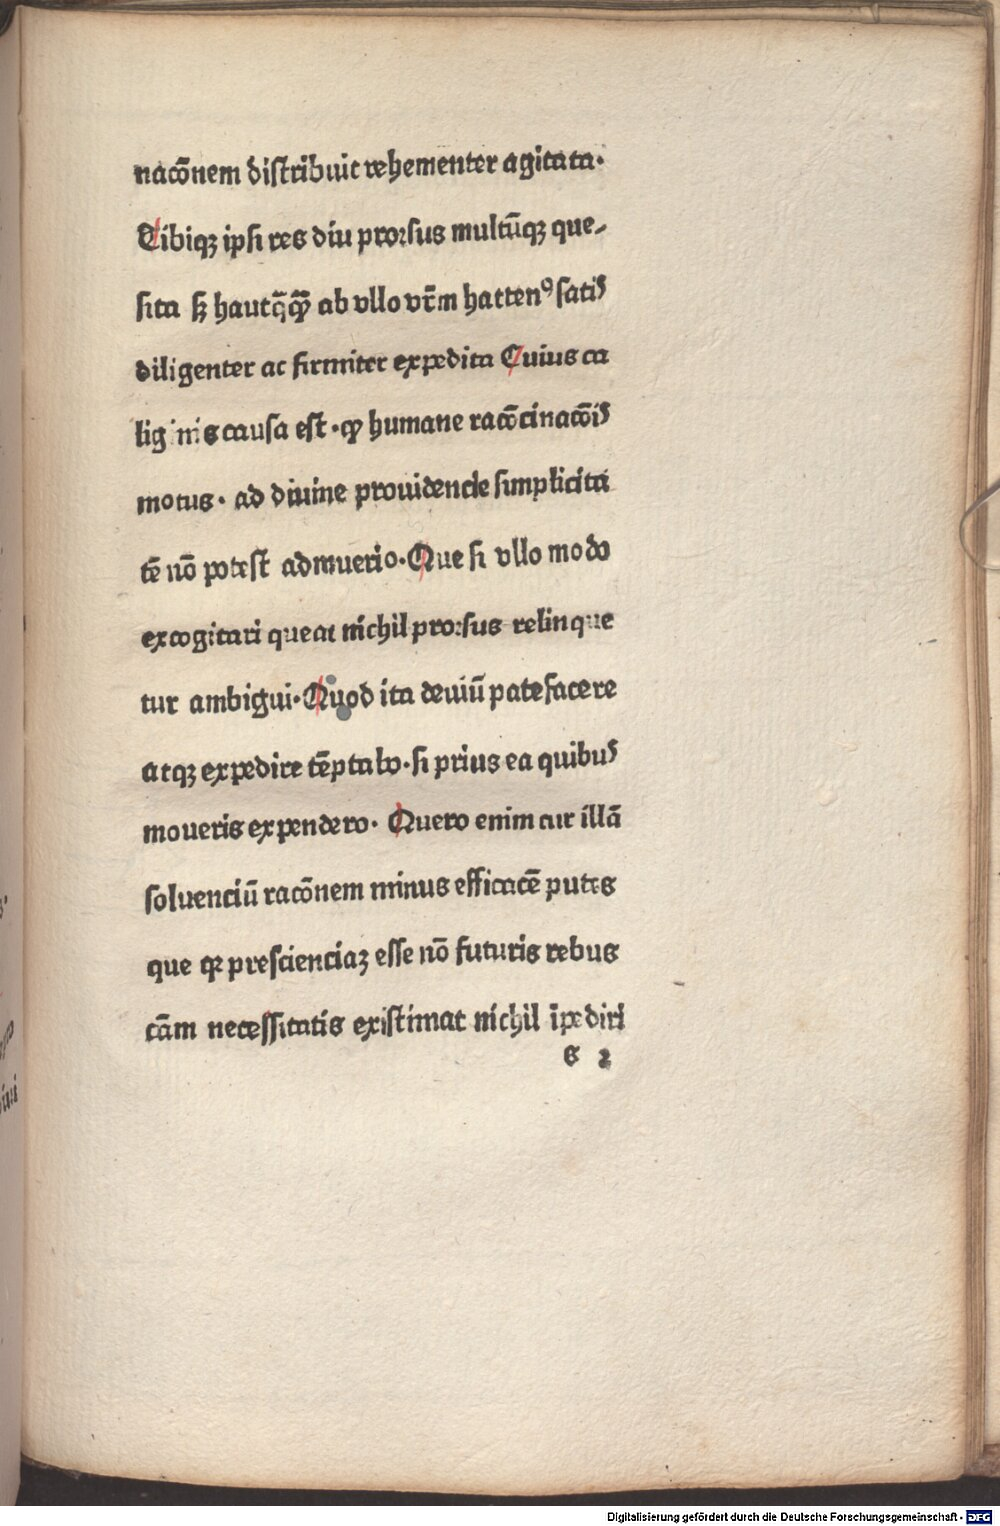 nacōnem distribuit vehementer agitata.
Tibiqꝫ ipsi res diu prorsus multūqꝫ que-
sita sꝫ hautq̄ꝙ̄ ab vllo vr̄m hactenꝰ satis
diligenter ac firmiter expedita Cuius ca
liginis causa est. ꝙ humane racōcinacōis
motus. ad diuine prouidencie simplicita
tē nō potest admueri o. Que si vllo modo
excogitari queat nichil prorsus relinque
tur ambigui. Quod ita demū patefacere
atqꝫ expedire tēptabo. si prius ea quibus
moueris expendero. Quero enim cur illā
soluenciū racōnem minus efficacē putes
que qꝛ prescienciaꝫ esse nō futuris rebus
cām necessitatis existimat nichil īpediri
s 2
s:
Digitalisierung gefördert durch die Deutsche Forschungsgemeinschaft - DFG